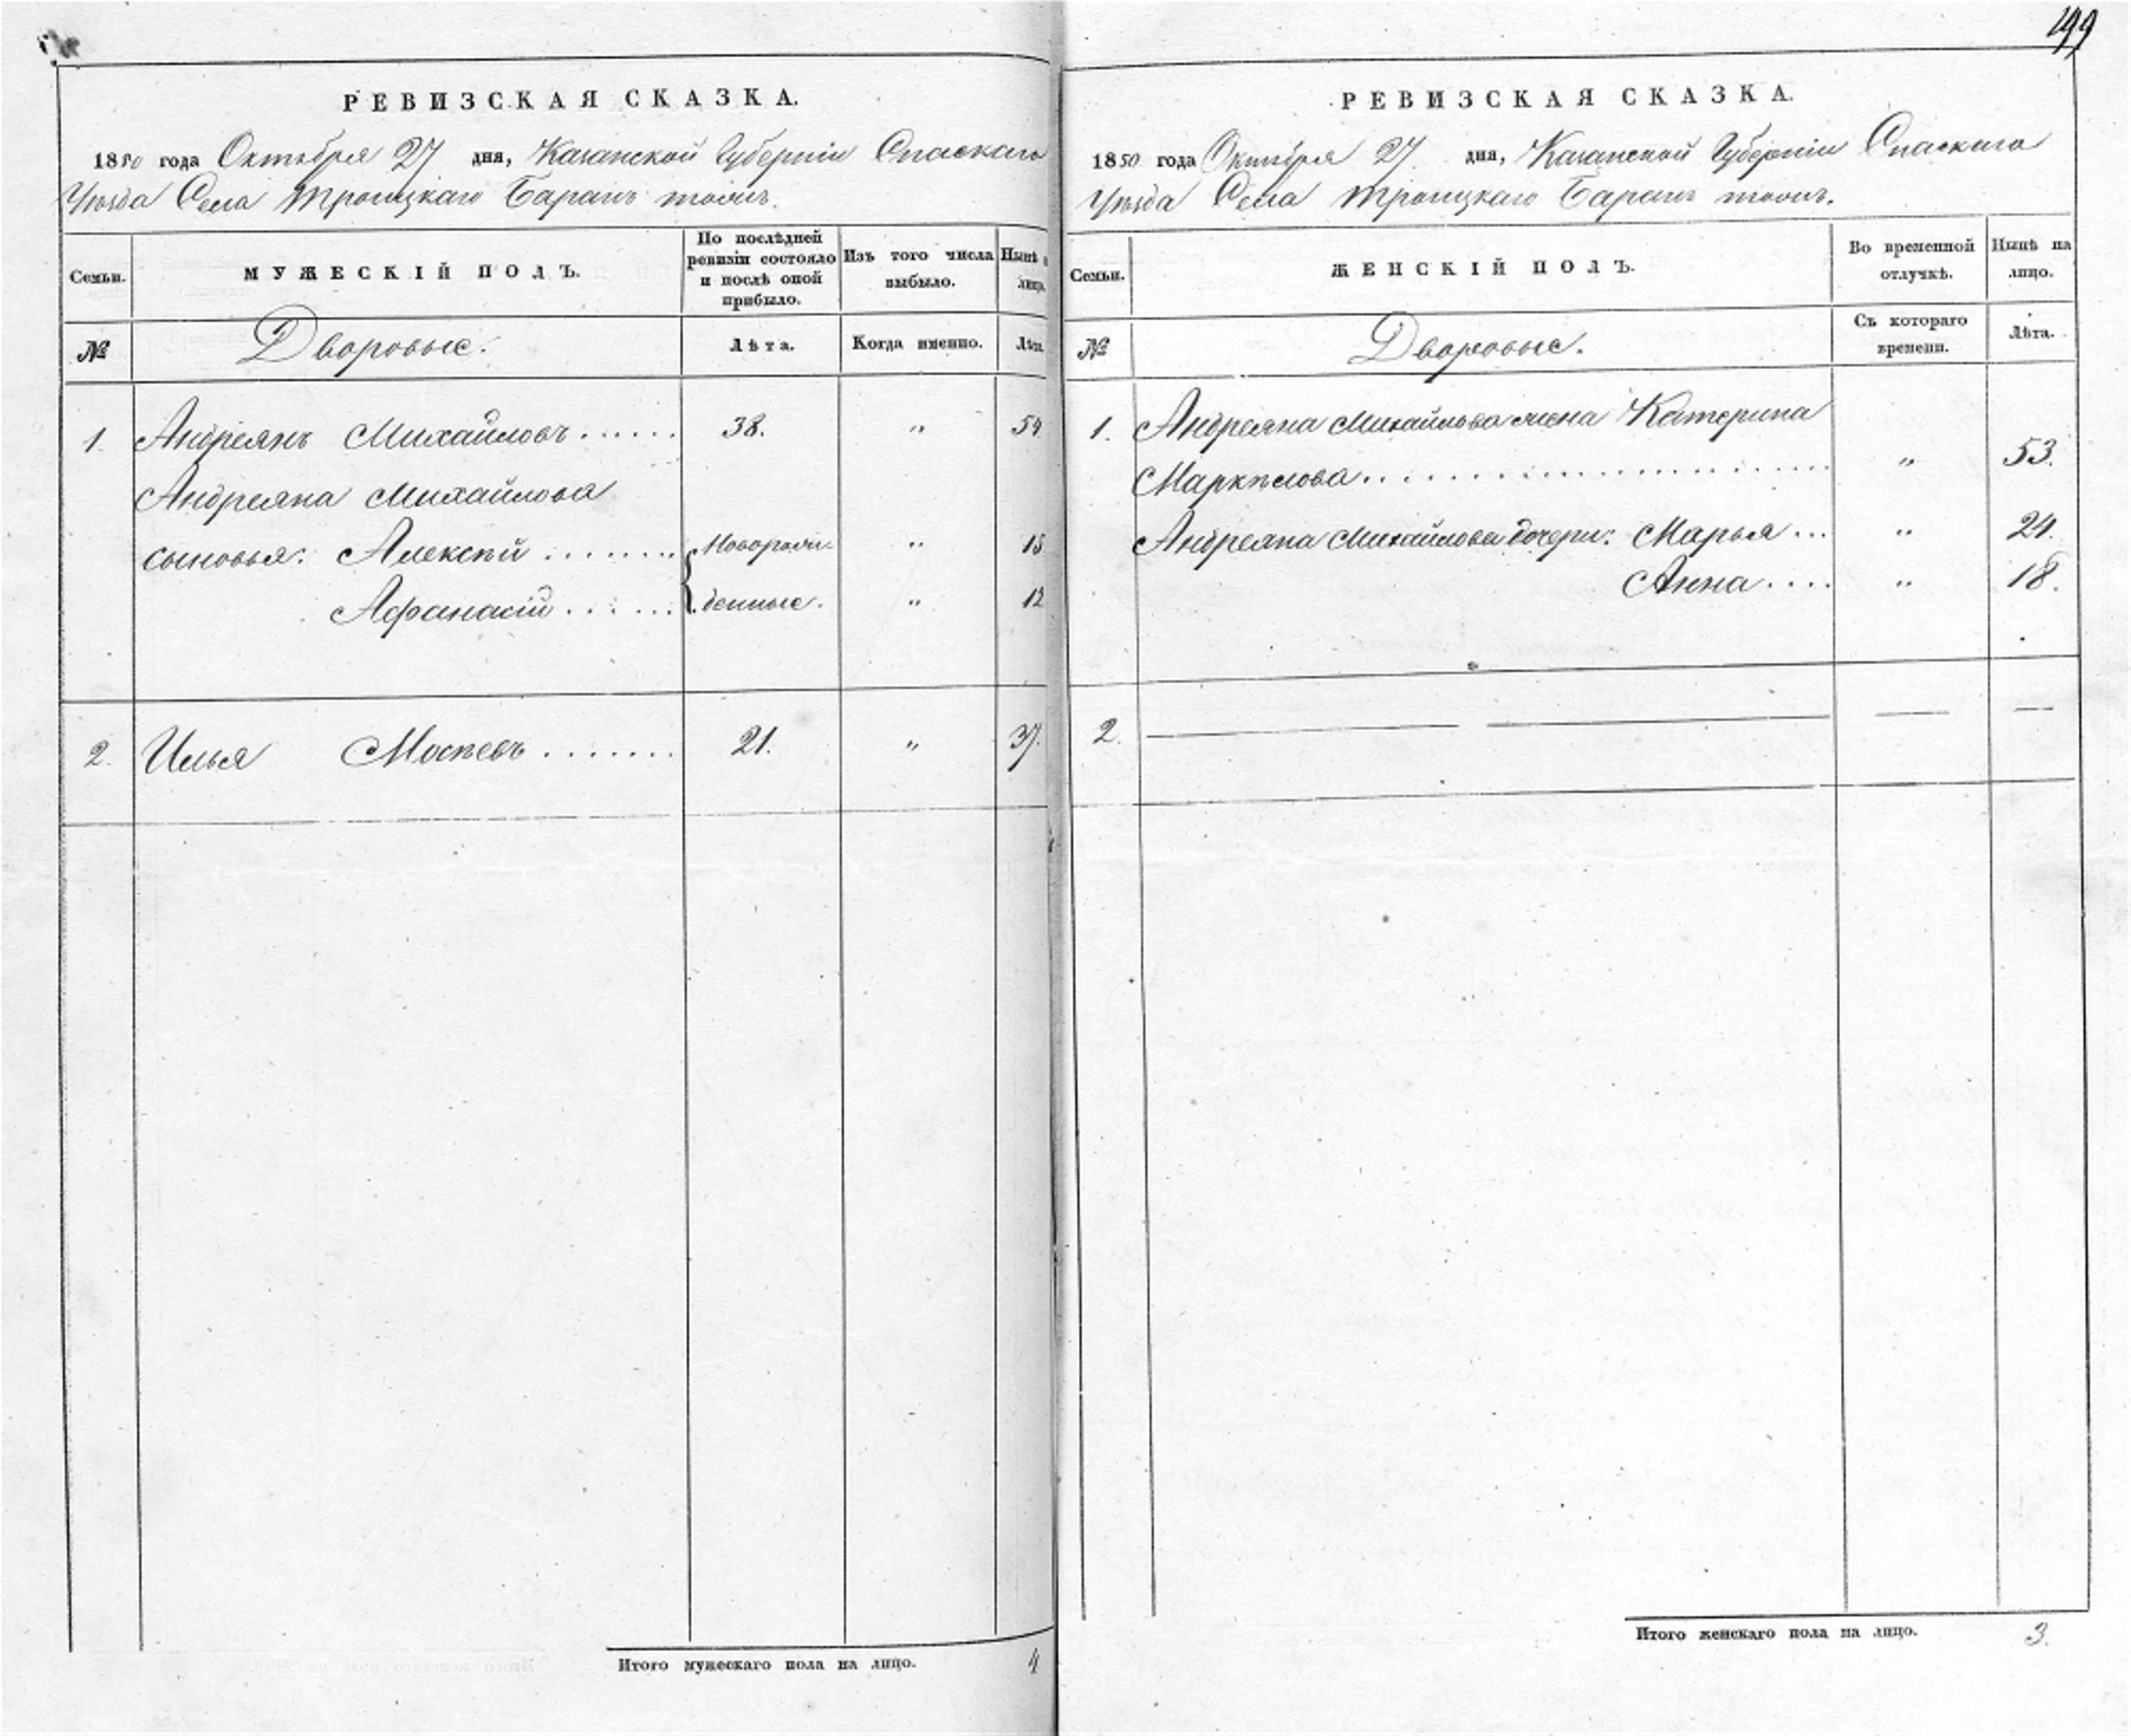 199
РЕВИЗСКАЯ СКАЗКА.
1850 года Октября 27 дня, Казанской Губерніи Спаскаго
Уѣзда Села Троицкаго Баранъ тожъ.
Семьи.
МУЖЕСКІЙ ПОЛЪ.
По послѣдней ревизіи состояло и послѣ оной прибыло.
Изъ того числа выбыло.
Нынѣ лицо.
№
Дворовые.
Лѣта.
Когда именно.
Лѣта
1. Андреянъ Михайловъ...... 38. " 54
Андреяна Михайлова
сыновья: Алексѣй ....... Новорож- " 15
Афанасій ...... денные. " 12
2. Илья Мосѣевъ ....... 21. " 37.
Итого мужескаго пола на лицо. 4
РЕВИЗСКАЯ СКАЗКА.
1850 года Октября 27 дня, Казанской Губерніи Спаскаго
Уѣзда Села Троицкаго Баранъ тожъ.
Семьи.
ЖЕНСКІЙ ПОЛЪ.
Во временной отлучкѣ.
Нынѣ на лицо.
№
Дворовые.
Съ котораго времени.
Лѣта.
1. Андреяна Михайлова жена Катерина
Маркѣлова.................... " 53.
Андреяна Михайлова дочери: Марья... " 24.
Анна.... " 18.
2. — — — —
Итого женскаго пола на лицо. 3.